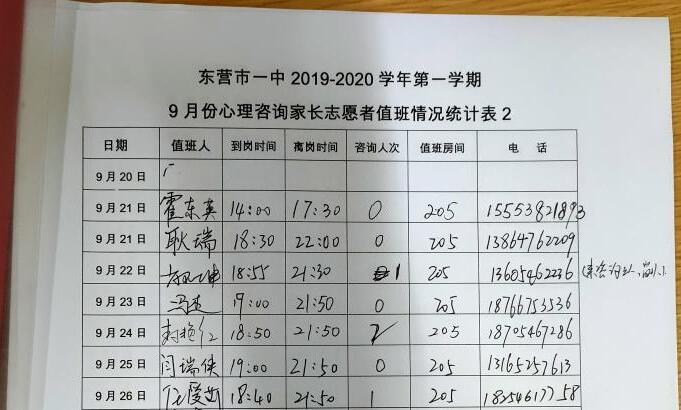 东营市一中 2019-2020 学年第一学期
9 月份心理咨询家长志愿者值班情况统计表 2
日期 值班人 到岗时间 离岗时间 咨询人次 值班房间 电 话
9 月 20 日
9 月 21 日 霍东英 14:00 17:30 0 205 15553821893
9 月 21 日 耿瑞 18:30 22:00 0 205 13864762209
9 月 22 日 18:55 21:30 1 205 13605462236
9 月 23 日 19:00 21:50 0 205 18766753536
9 月 24 日 18:50 21:50 2 205 18705467286
9 月 25 日 闫瑞侠 19:00 21:50 0 205 13165257613
9 月 26 日 18:40 21:50 1 205 18254617758